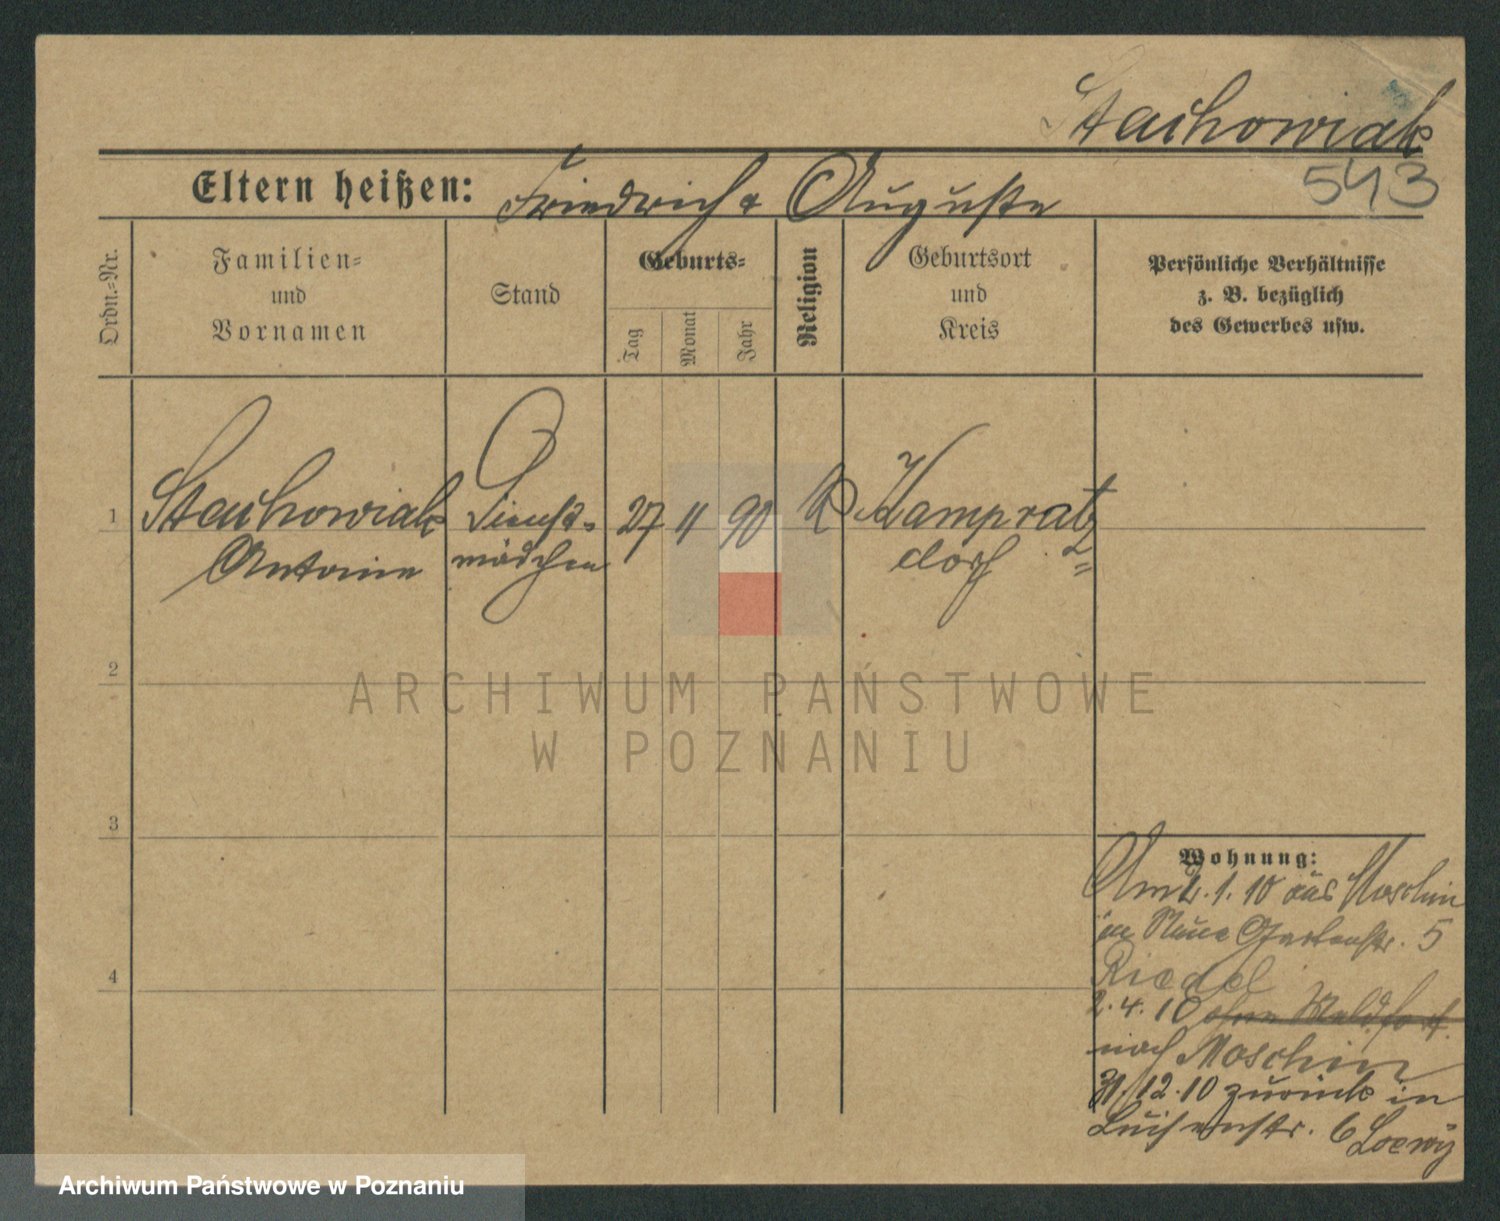 Stachowiak
543
Eltern heißen: Friedrich & Auguste
Ordn.-Nr.
Familien-
und
Vornamen
Stand
Geburts-
Tag
Monat
Jahr
Religion
Geburtsort
und
Kreis
Persönliche Verhältnisse
z. B. bezüglich
des Gewerbes usw.
1
Stachowiak Dienst- 27 11 90 K Kampratz
Antonie mädchen dorf
2
ARCHIWUM PAŃSTWOWE
W POZNANIU
3
Wohnung:
Am 2.1.10 aus Moschin
in Neue Gartenstr. 5
Riedel
2.4.10 ohne
nach Moschin
31/12.10 zurück in
Luisenstr. 6 Loewy
4
Archiwum Państwowe w Poznaniu